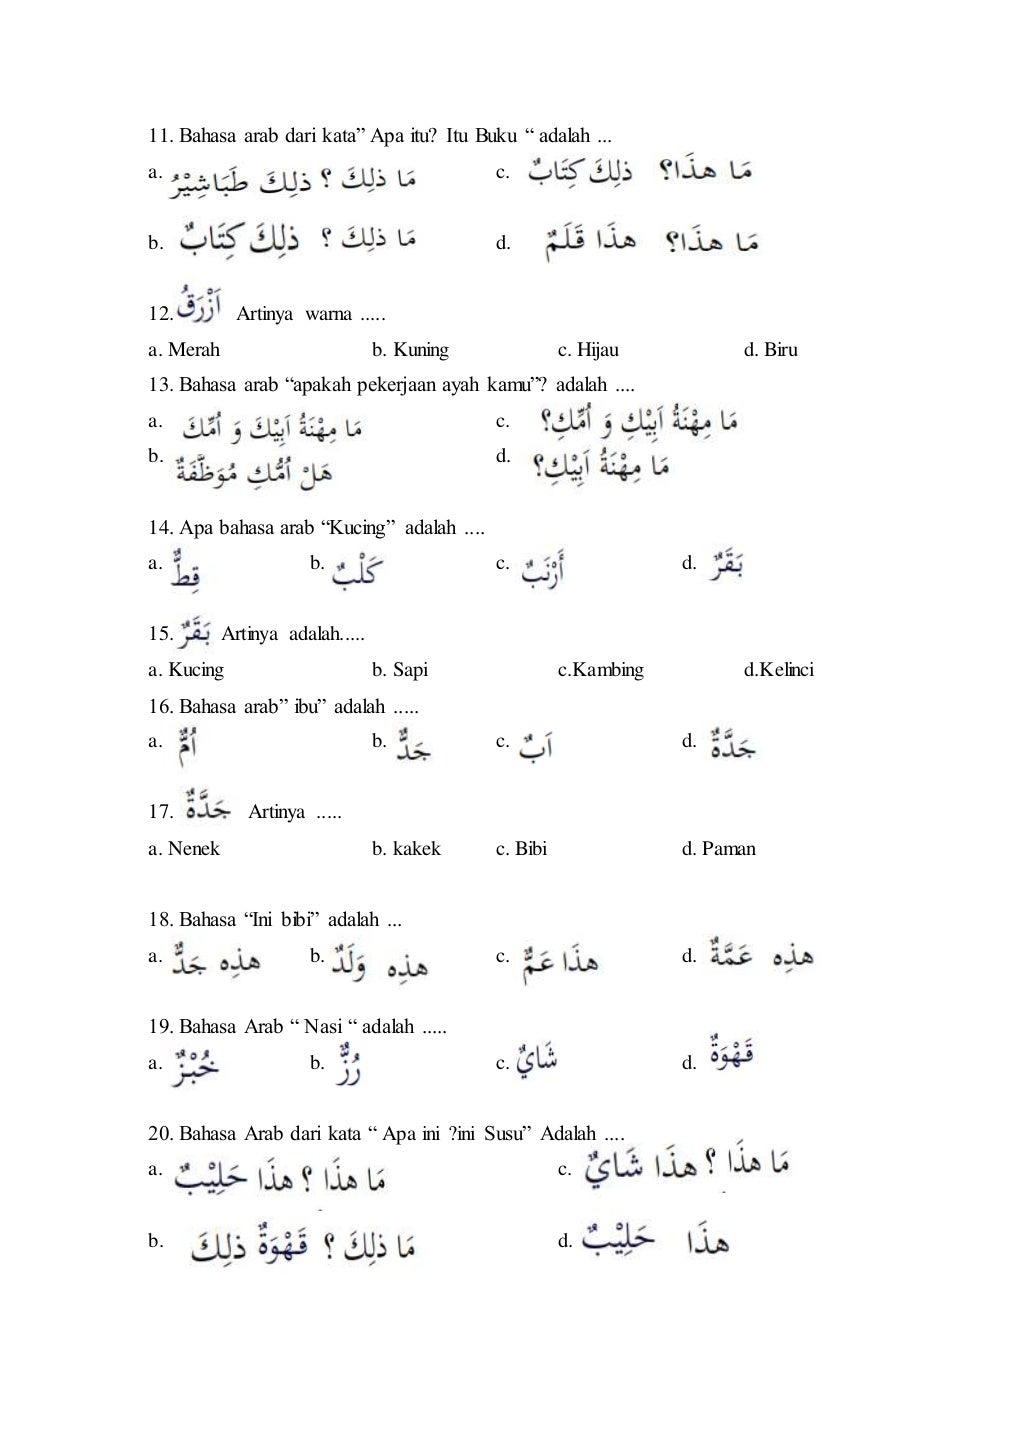 11. Bahasa arab dari kata” Apa itu? Itu Buku “ adalah ...
a. مَا ذٰلِكَ ؟ ذٰلِكَ طَبَاشِيْرُ c. مَا هذَا؟ ذٰلِكَ كِتَابٌ
b. مَا ذٰلِكَ ؟ ذٰلِكَ كِتَابٌ d. مَا هذَا؟ هذَا قَلَمٌ
12. اَزْرَقُ Artinya warna .....
a. Merah b. Kuning c. Hijau d. Biru
13. Bahasa arab “apakah pekerjaan ayah kamu”? adalah ....
a. مَا مِهْنَةُ اَبِيْكَ وَ اُمِّكَ c. مَا مِهْنَةُ اَبِيْكِ وَ اُمِّكِ؟
b. هَلْ اُمُّكِ مُوَظَّفَةٌ d. مَا مِهْنَةُ اَبِيْكِ؟
14. Apa bahasa arab “Kucing” adalah ....
a. قِطٌّ b. كَلْبٌ c. أَرْنَبٌ d. بَقَرٌ
15. بَقَرٌ Artinya adalah.....
a. Kucing b. Sapi c.Kambing d.Kelinci
16. Bahasa arab” ibu” adalah .....
a. اُمٌّ b. جَدٌّ c. اَبٌ d. جَدَّةٌ
17. جَدَّةٌ Artinya .....
a. Nenek b. kakek c. Bibi d. Paman
18. Bahasa “Ini bibi” adalah ...
a. هذِه جَدٌّ b. هذِه وَلَدٌ c. هذَا عَمٌّ d. هذِه عَمَّةٌ
19. Bahasa Arab “ Nasi “ adalah .....
a. خُبْزٌ b. رُزٌّ c. شَايٌ d. قَهْوَةٌ
20. Bahasa Arab dari kata “ Apa ini ?ini Susu” Adalah ....
a. مَا هذَا ؟ هذَا حَلِيْبٌ c. مَا هذَا ؟ هذَا شَايٌ
b. مَا ذٰلِكَ ؟ قَهْوَةٌ ذٰلِكَ d. هذَا حَلِيْبٌ